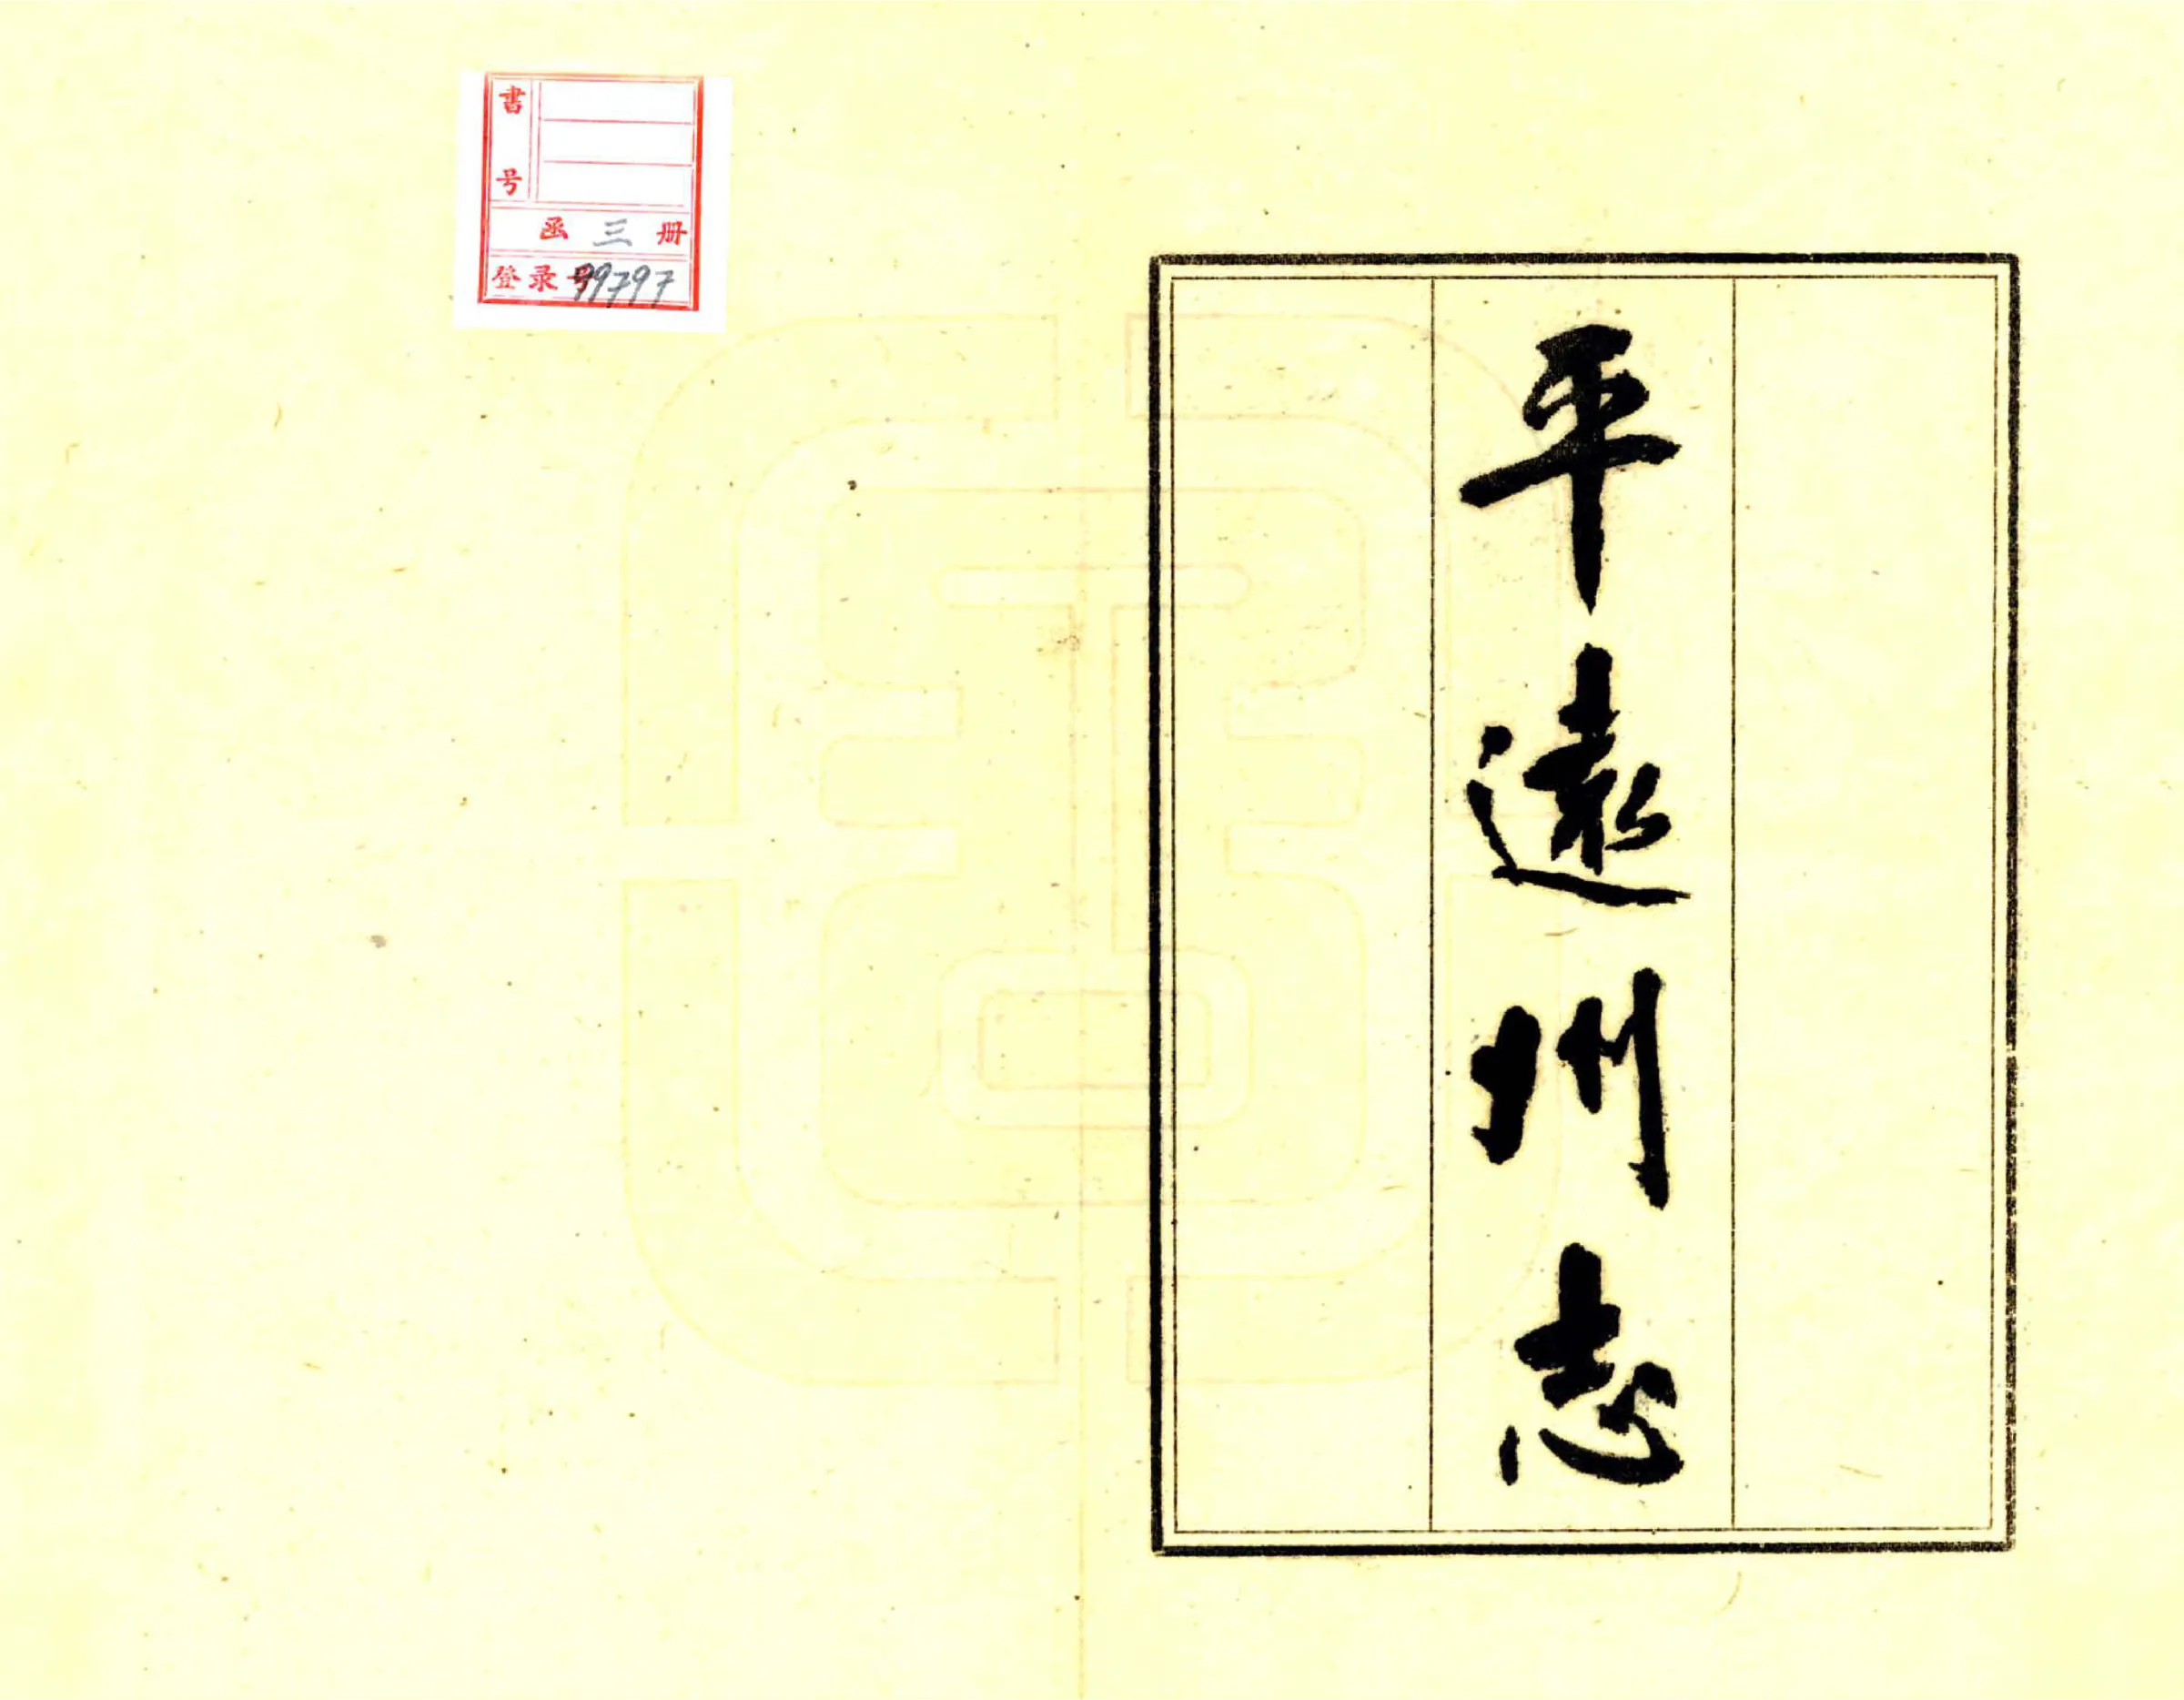 平遠州志
書号
函 三 册
登录号 99797